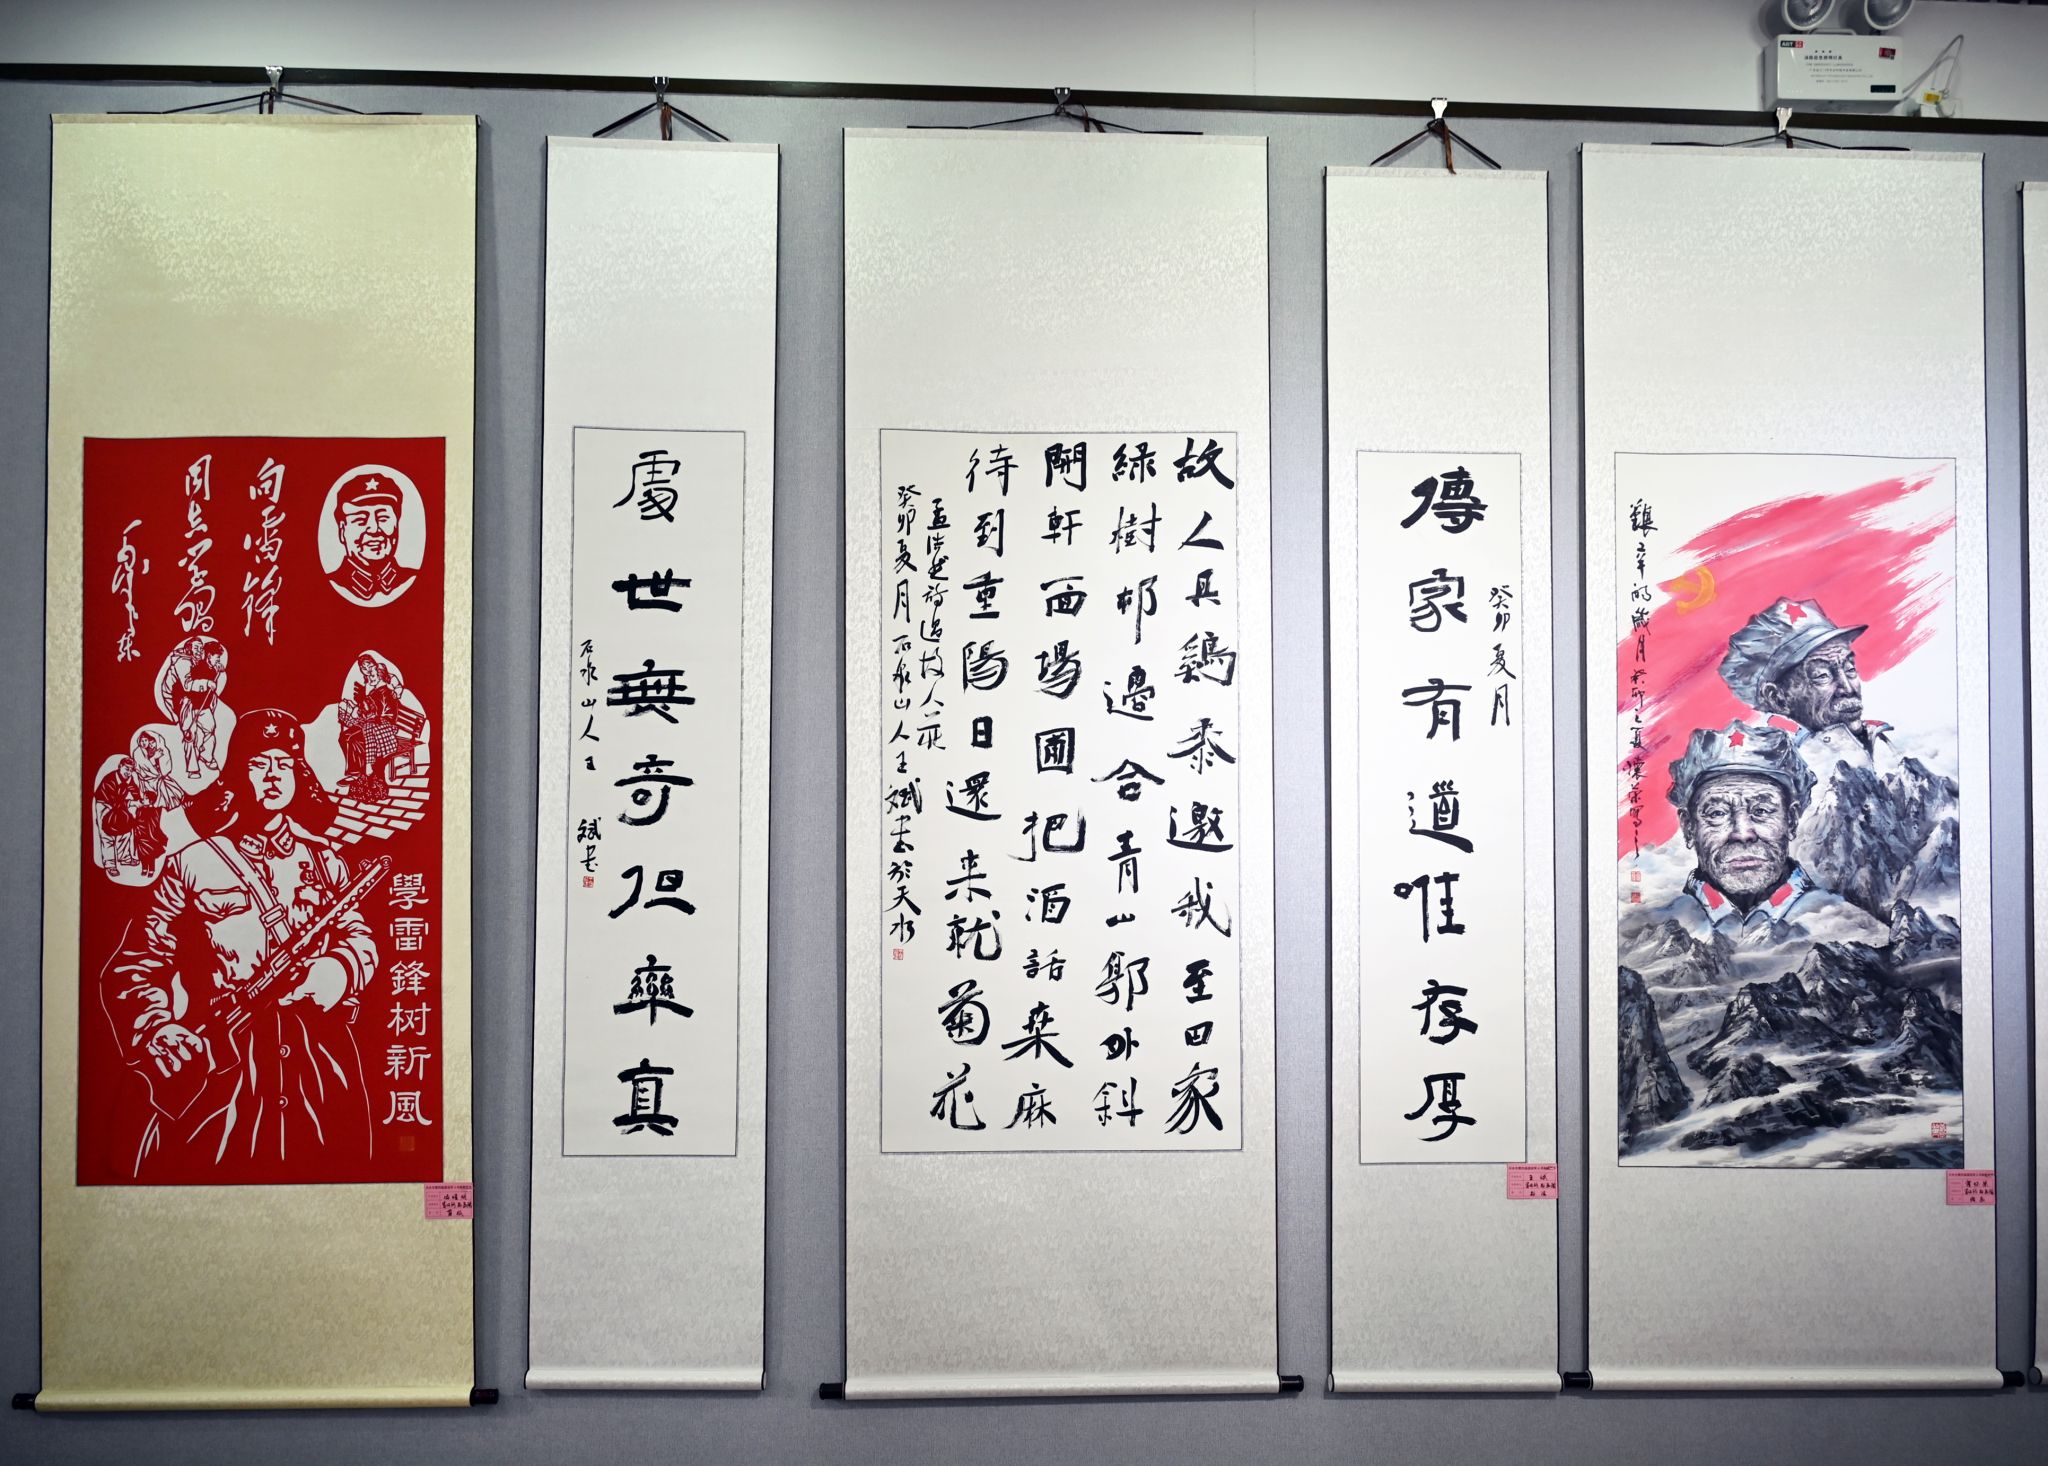 向雷锋
同志学习
毛泽东
學雷鋒树新風
處世無奇但率真
石泉山人王斌书
故人具鷄黍邀我至田家
緑樹邨邊合青山郭外斜
開軒面場圃把酒話桑麻
待到重陽日還来就菊花
孟浩然诗過故人莊
癸卯夏月石泉山人王斌书於天水
傳家有道唯存厚
癸卯夏月
艱辛的歲月